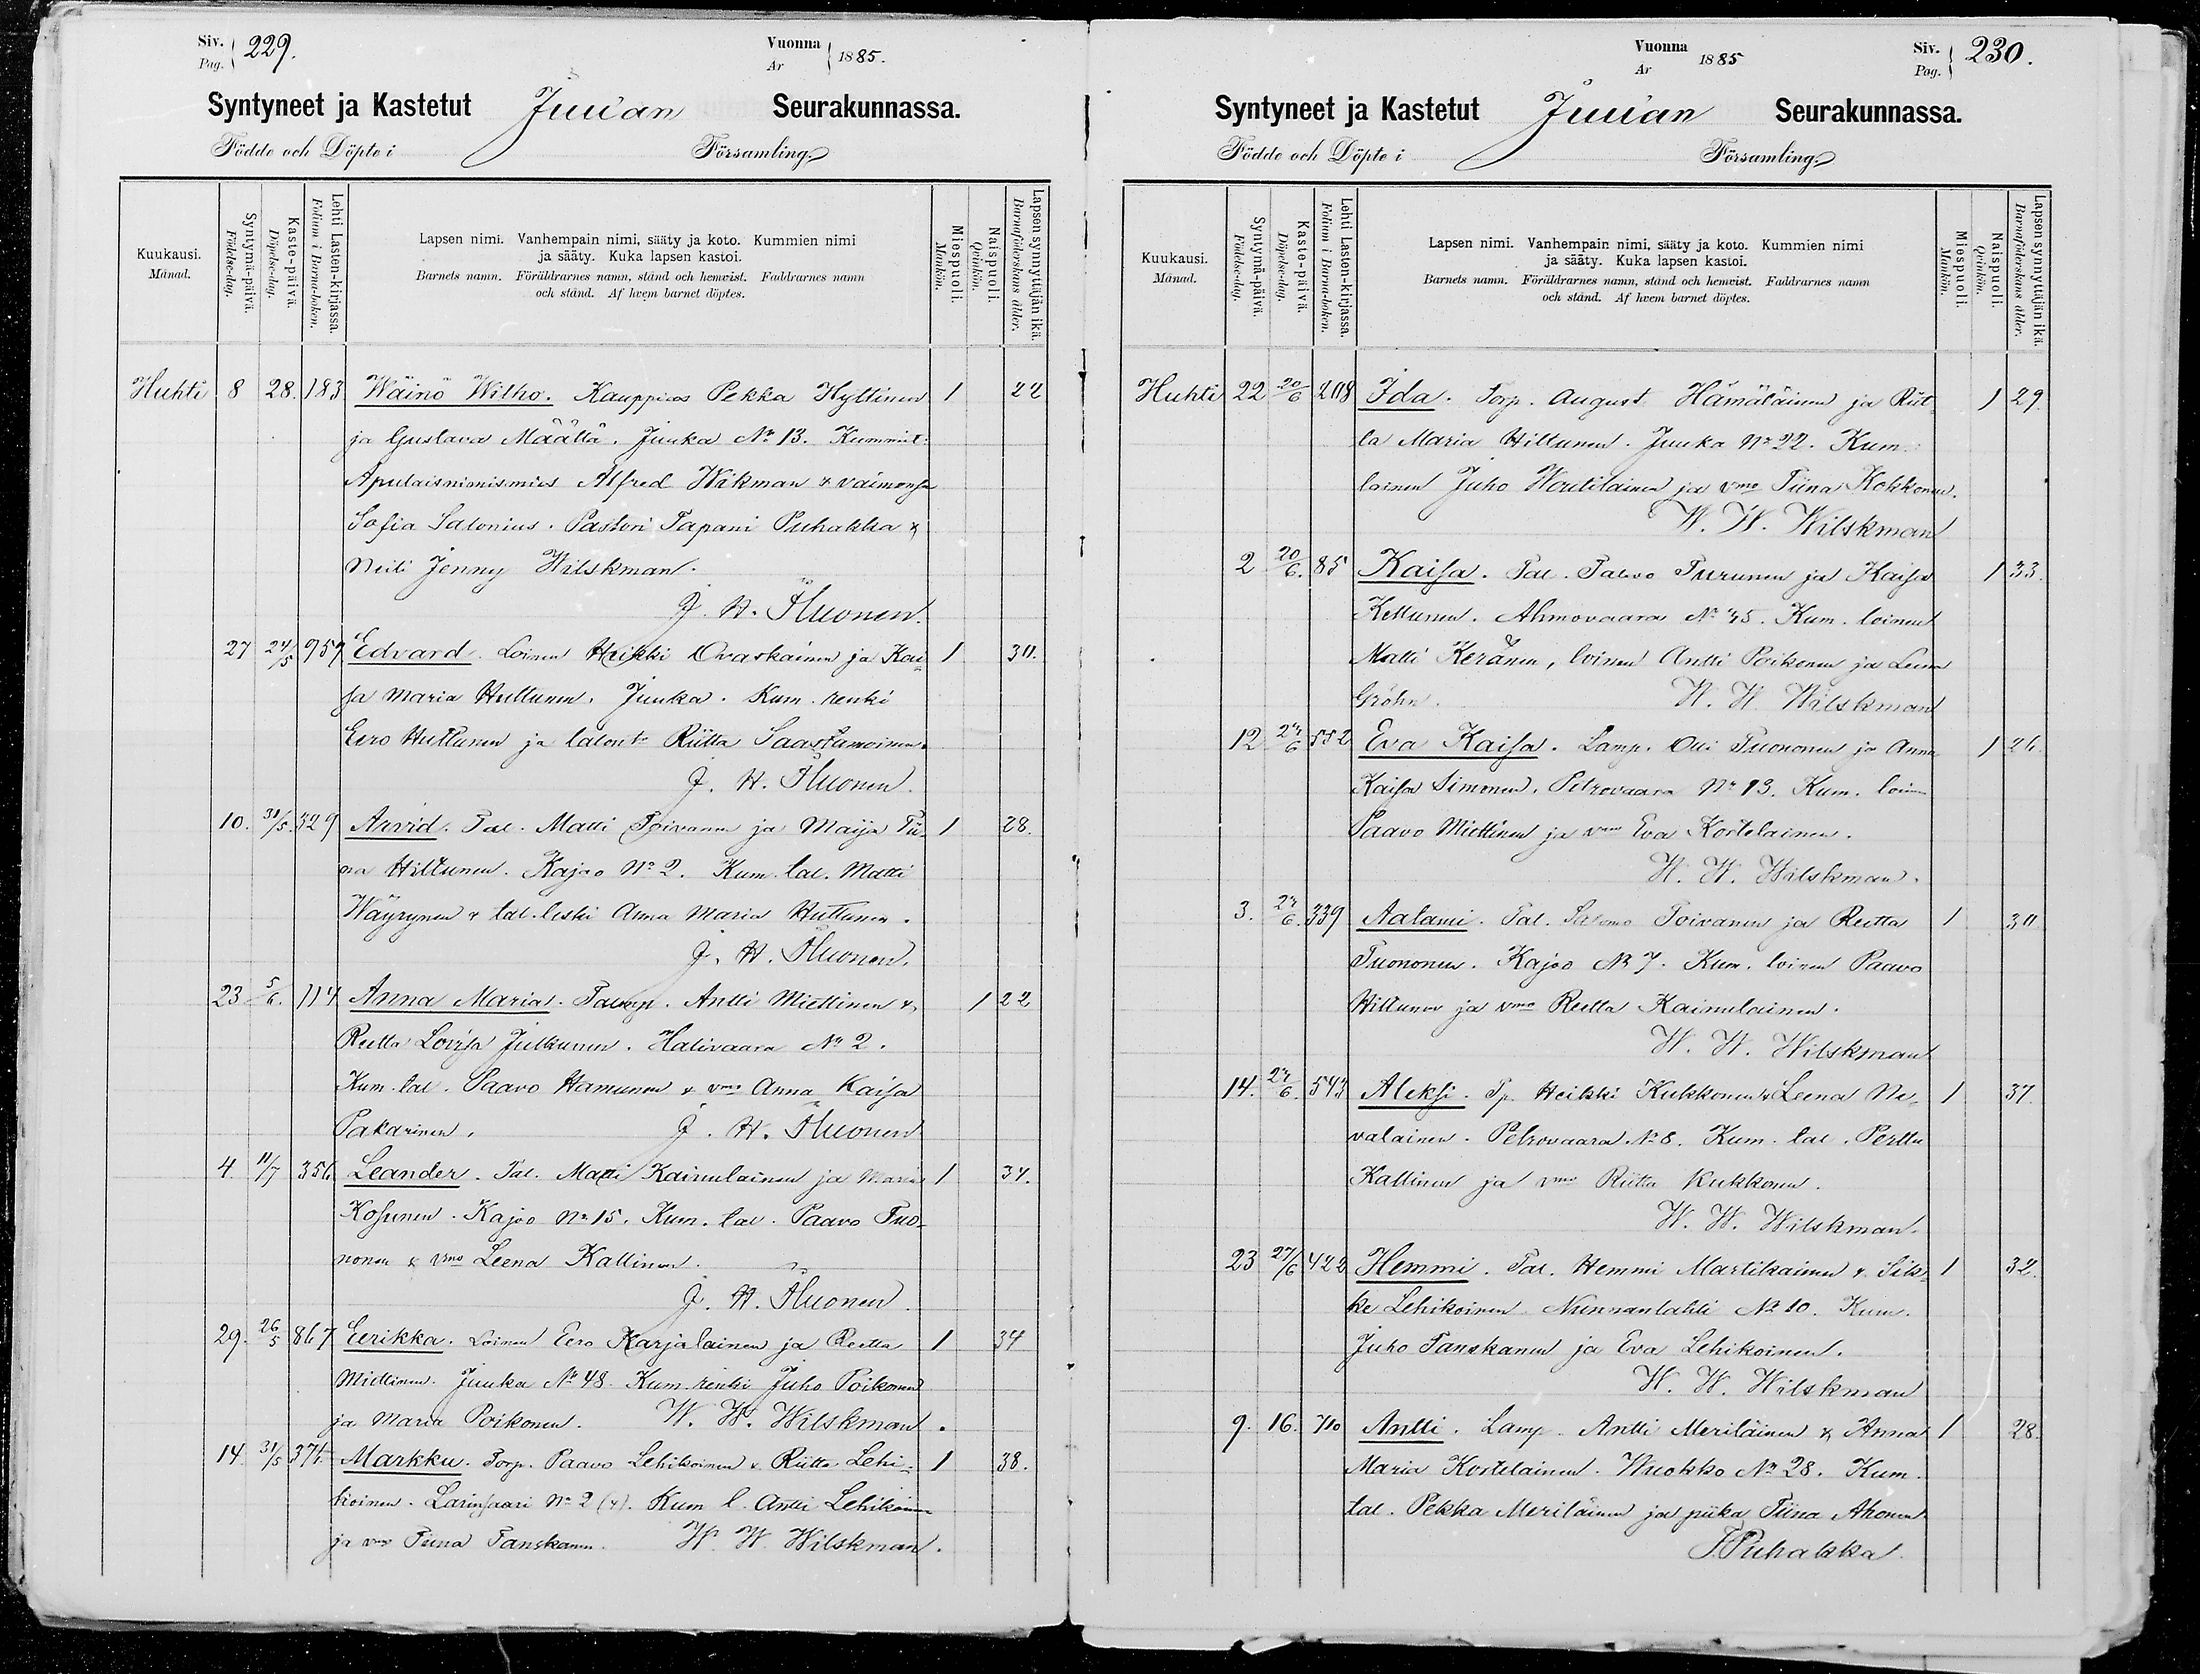 Siv. Pag. 229.
Vuonna Ar 1885.
Syntyneet ja Kastetut Juuan Seurakunnassa.
Födde och Döpte i Församling.
Kuukausi. Månad.
Syntymä-päivä. Födelse-dag.
Kaste-päivä. Döpelse-dag.
Lehti Lasten-kirjassa. Folium i Barna-boken.
Lapsen nimi. Vanhempain nimi, sääty ja koto. Kummien nimi
ja sääty. Kuka lapsen kastoi.
Barnets namn. Föräldrarnes namn, stånd och hemvist. Faddrarnes namn
och stånd. Af hvem barnet döptes.
Miespuoli. Mankön.
Naispuoli. Qvinkön.
Lapsen synnyttäjän ikä. Barnaföderskans ålder.
Huhti 8 28. 183 Wäinö Wilho. Kauppias Pekka Hyttinen 1 22
ja Gustava Määttä. Juuka No 13. Kummit:
Apulaisnimismies Alfred Wikman & vaimonsa
Sofia Salonius. Pastori Tapani Puhakka &
Neiti Jenny Wilskman.
J. H. Ihuonen.
27 24/5 959 Edvard. Loinen Heikki Ovaskainen ja Kai- 1 30.
sa Maria Huttunen. Juuka. Kum. renki
Eero Huttunen ja talont. Riitta Saastamoinen.
J. H. Ihuonen.
10. 31/5. 329 Arvid. Tal. Matti Toivanen ja Maija Tii- 1 28.
na Hiltunen. Kajoo No 2. Kum. tal. Matti
Wäyrynen & tal. leski Anna Maria Huttunen.
J. H. Ihuonen.
23 5/6. 114 Anna Maria. Antti Miettinen & 1 22
Reetta Lovisa Julkunen. Halivaara No 2.
Kum. tal. Paavo Hamunen & vmo Anna Kaisa
Pakarinen. J. H. Ihuonen
4. 11/7 356 Leander. Tal. Matti Kainulainen ja Maria 1 34.
Kosunen. Kajoo No 15. Kum. tal. Paavo Tuo-
nonen & vmo Leena Kallinen.
J. H. Ihuonen.
29. 26/5 867 Eerikka. Loinen Eero Karjalainen ja Reetta 1 34
Miettinen. Juuka No 48. Kum. renki Juho Poikonen
ja Maria Poikonen. W. W. Wilskman.
14. 31/5 371. Markku. Torp. Paavo Lehikoinen & Riitta Lehi- 1 38.
koinen. Larinsaari No 2 (4). Kum. l. Antti Lehikoinen
ja vmo Tiina Tanskanen. W. W. Wilskman.
Vuonna Ar 1885
Siv. Pag. 230.
Syntyneet ja Kastetut Juuan Seurakunnassa.
Födde och Döpte i Församling.
Kuukausi. Månad.
Syntymä-päivä. Födelse-dag.
Kaste-päivä. Döpelse-dag.
Lehti Lasten-kirjassa. Folium i Barna-boken.
Lapsen nimi. Vanhempain nimi, sääty ja koto. Kummien nimi
ja sääty. Kuka lapsen kastoi.
Barnets namn. Föräldrarnes namn, stånd och hemvist. Faddrarnes namn
och stånd. Af hvem barnet döptes.
Miespuoli. Mankön.
Naispuoli. Qvinkön.
Lapsen synnyttäjän ikä. Barnaföderskans ålder.
Huhti 22 20/6 208 Ida. Torp. August Hämäläinen ja Riit- 1 29.
ta Maria Hiltunen. Juuka No 22. Kum.
loinen Juho Woutilainen ja vmo Tiina Kokkonen.
W. W. Wilskman
2 20/6. 85 Kaisa. Tal. Paavo Turunen ja Kaisa 1 33.
Kettunen. Ahmovaara No 45. Kum. loinen
Matti Keränen, loinen Antti Poikonen ja Leena
Gröhn. W. W. Wilskman
12 24/6 552 Eva Kaisa. Lamp. Olli Tuononen ja Anna 1 26.
Kaisa Simonen. Petrovaara No 13. Kum. loinen
Paavo Miettinen ja vmo Eva Kortelainen.
W. W. Wilskman.
3. 24/6. 339 Aalami. Tal. Salomo Toivanen ja Reetta 1 30
Tuononen. Kajoo No 7. Kum. loinen Paavo
Hiltunen ja vmo Reetta Kainulainen.
W. W. Wilskman
14. 24/6. 543 Aleksi. Tp. Heikki Kukkonen & Leena Ne- 1 37.
valainen. Petrovaara No 8. Kum. tal. Perttu
Kallinen ja vmo Riitta Kukkonen.
W. W. Wilskman.
23 27/6 422 Hemmi. Tal. Hemmi Martikainen & Silk- 1 32.
ke Lehikoinen. Nunnanlahti No 10. Kum.
Juho Tanskanen ja Eva Lehikoinen.
W. W. Wilskman
9. 16. 710 Antti. Lamp. Antti Meriläinen & Anna 1 28.
Maria Kortelainen. Wuokko No 28. Kum.
tal. Pekka Meriläinen ja piika Tiina Ahonen.
T. Puhakka.